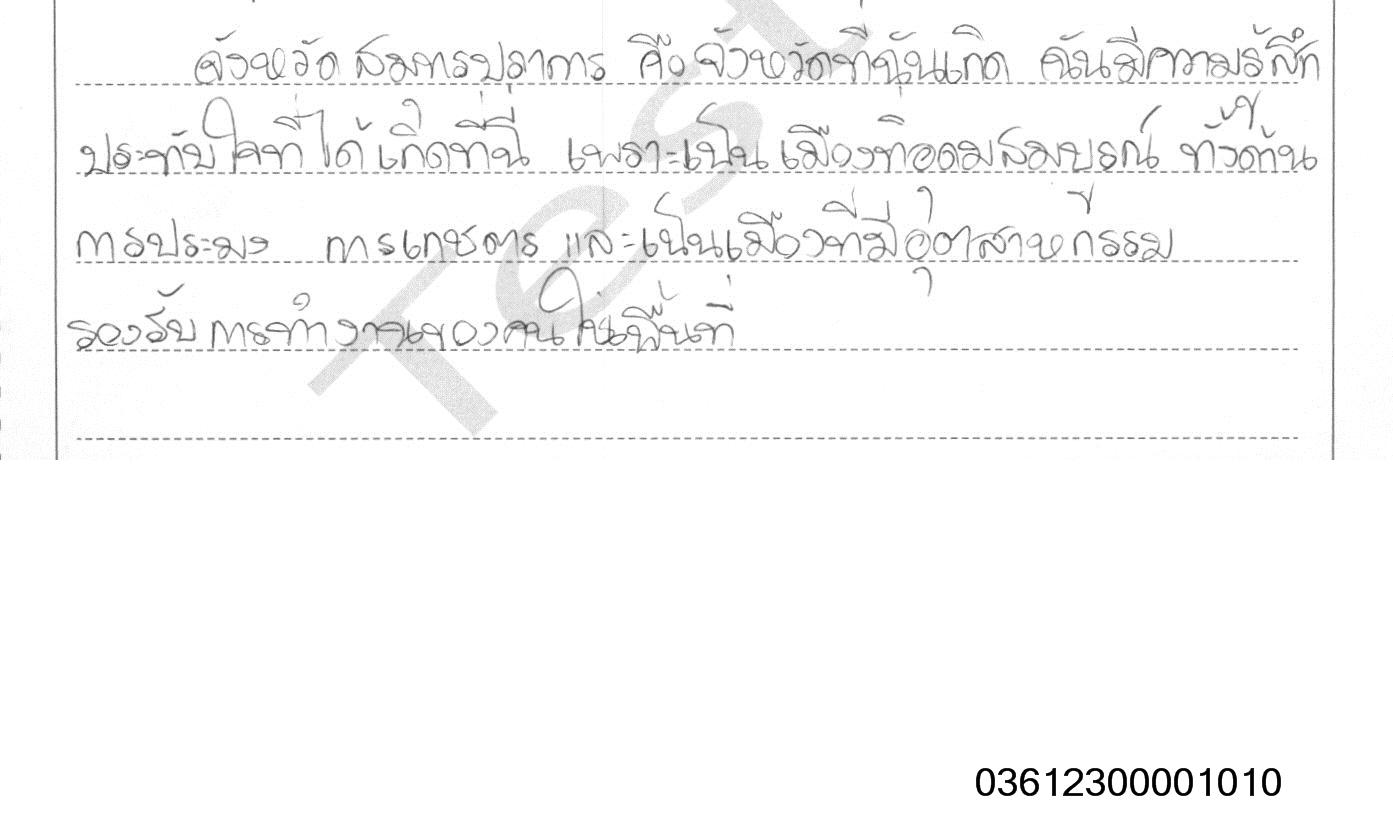 จังหวัดสมุทรปราการ คือ จังหวัดที่ฉันเกิด ฉันมีความรู้สึก
ประทับใจที่ได้เกิดที่นี่ เพราะเป็นเมืองที่อุดมสมบูรณ์ ทั้งด้าน
การประมง การเกษตร และเป็นเมืองที่มีอุตสาหกรรม
รองรับการทำงานของคนในพื้นที่
Test
03612300001010